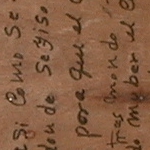 si como se
donde se yiso
pora que el
tres mondo
do muber el